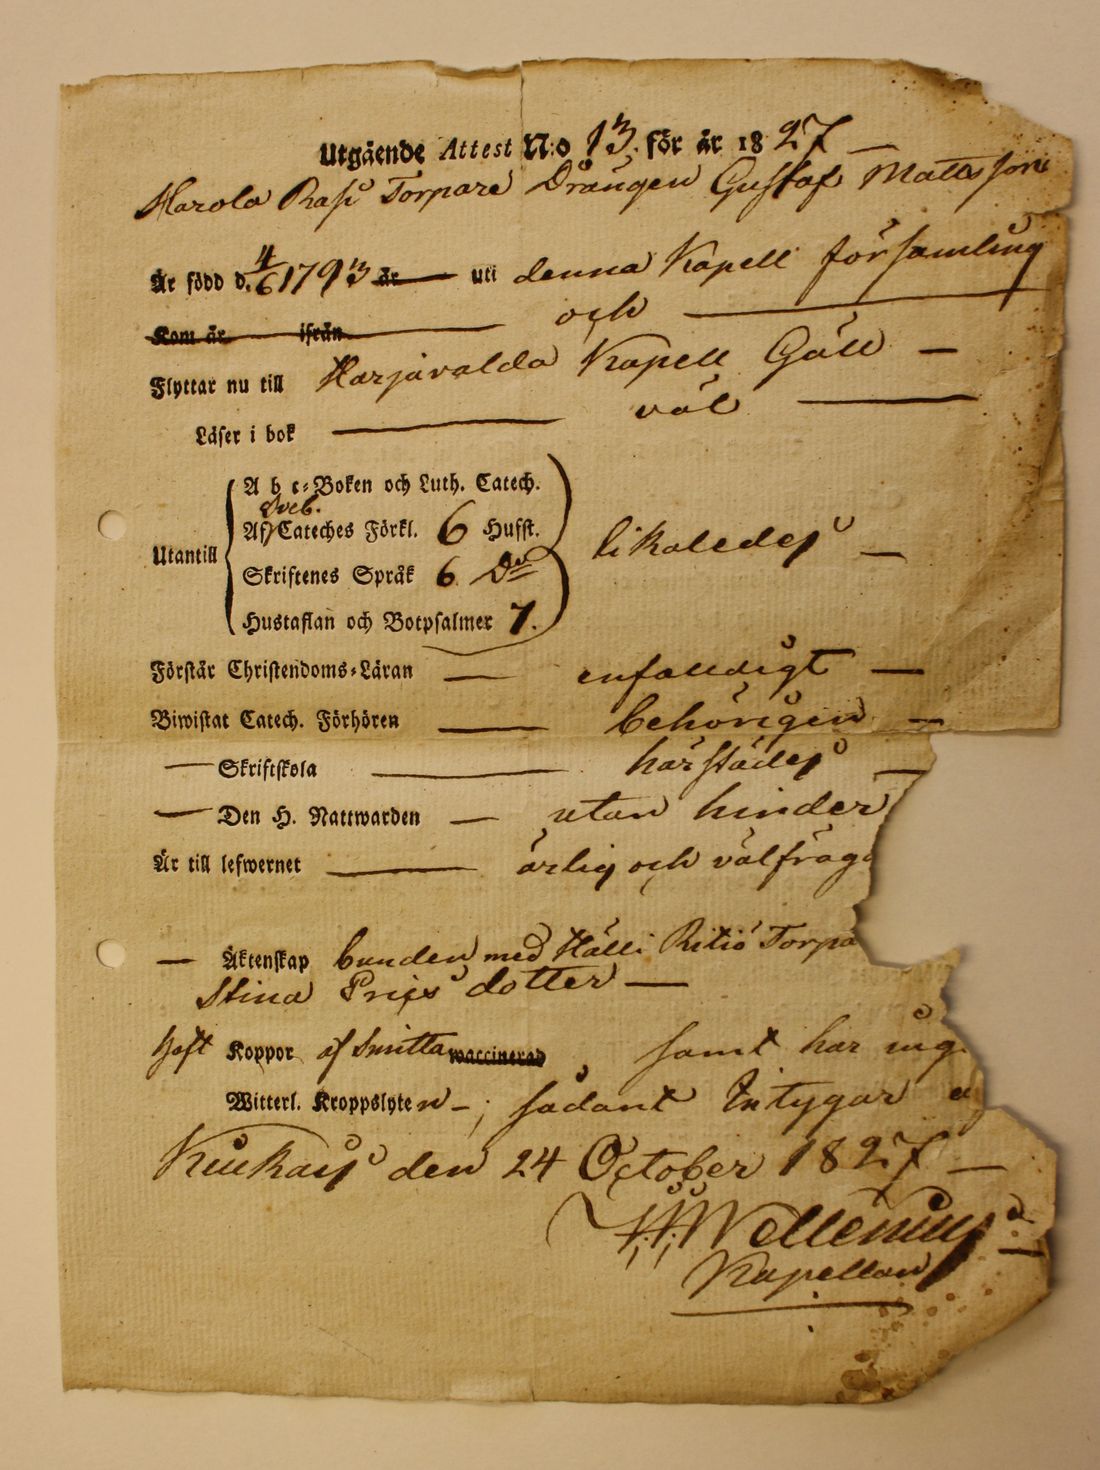 Utgående Attest N:o 13. för år 1827 —
Harola Rasi Torpare Drängen Gustaf Mattsson
Är född d. 4/6 1793 år — uti denna Kapell församling
Kom år — ifrån — och —
Flyttar nu till Harjavalda Kapell Gäll —
Läser i bok — väl —
Utantill
A b c-Boken och Luth. Catech.
Sveb.
Af Cateches Förkl. 6 Hufst.
Skriftenes Språk 6 Do
Hustaflan och Botpsalmer 7.
likaledes —
Förstår Christendoms-Läran — enfaldigt —
Biwistat Catech. Förhören — behörigen —
— Skriftskola — härstädes —
— Den H. Nattwarden — utan hinder
Är till lefwernet — ärlig och välfräg
— Äktenskap bunden med Hälli Torpa
Stina dotter —
haft Koppor af Smitta waccinerad, samt har ing
Witterl. Kroppslyten —; sådant Intygar
den 24 October 1827 —
Wellenius
Kapellan